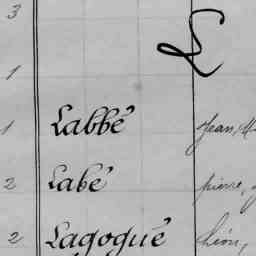 3
L
1
1 Labbé Jean, M
2 Labé pierre,
2 Lagogué Léon,